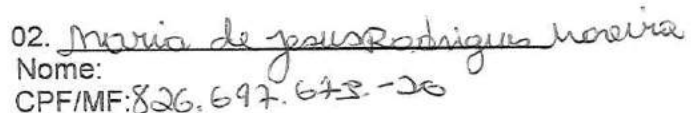 02. Maria de Jesus Rodrigues Moreira
Nome:
CPF/MF:826.697.673.-20